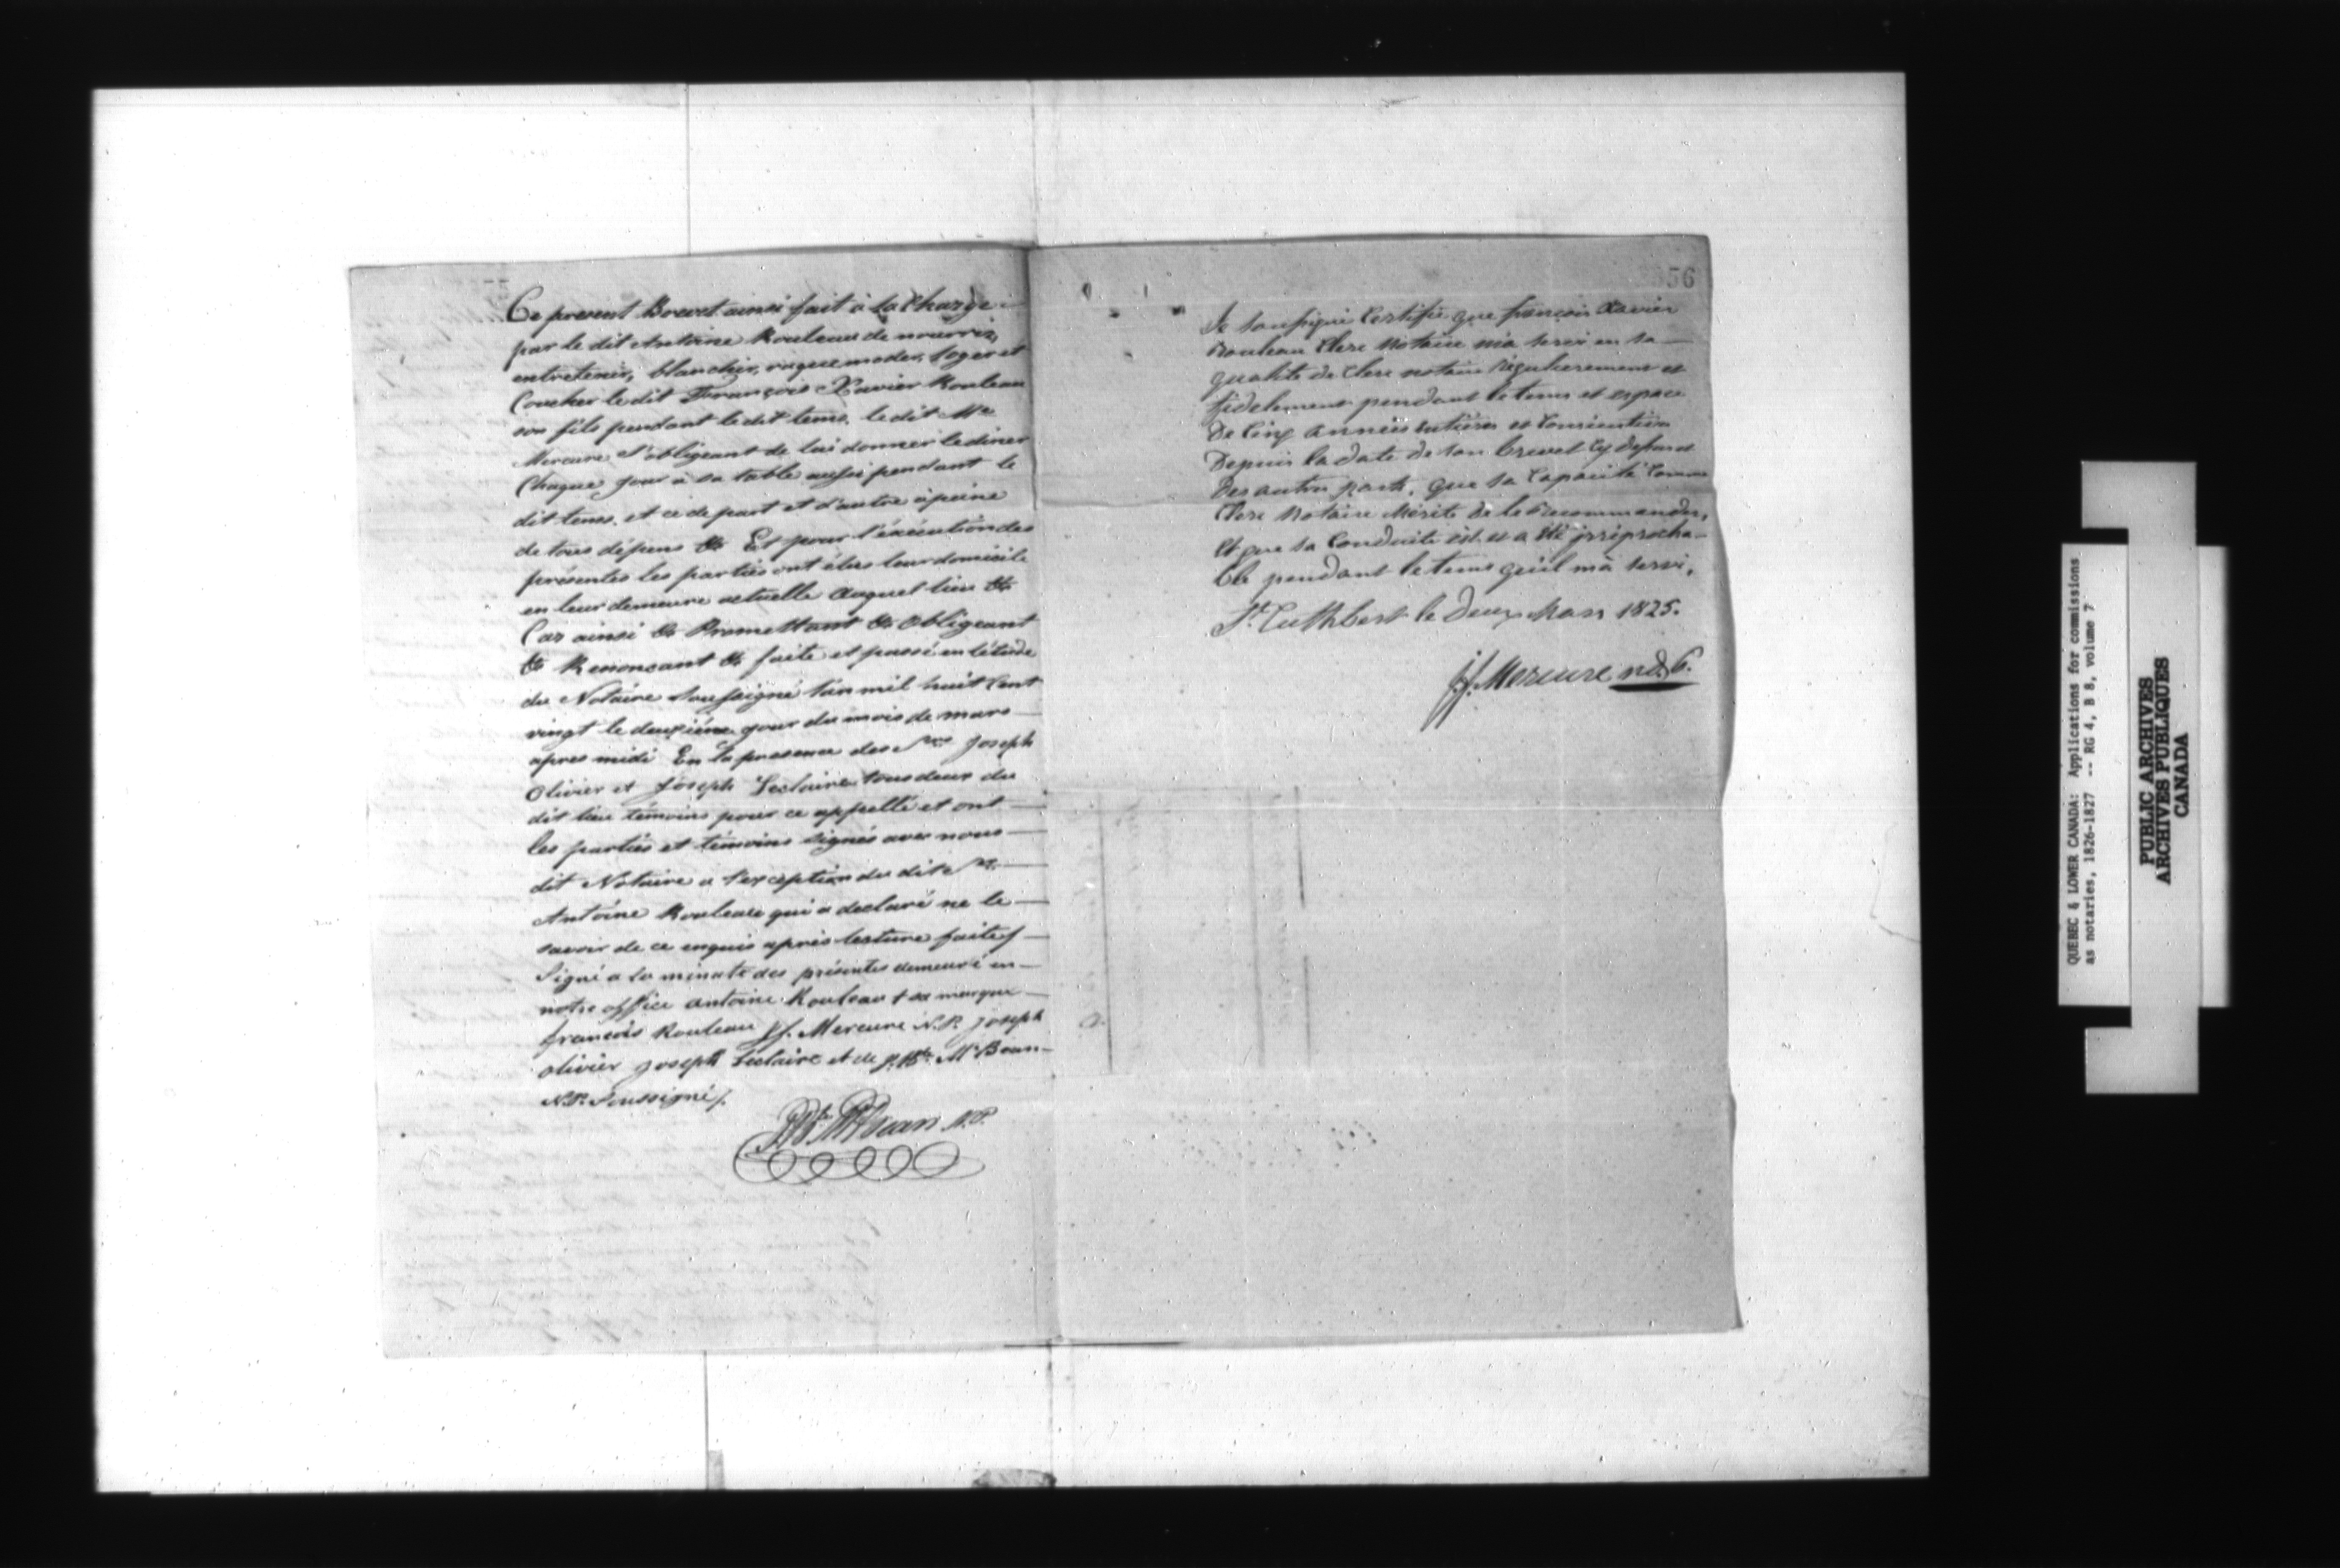 Ce present Brevet ainsi fait à la Charge
par le dit Antoine Rouleau de nourrir,
entretenir, blanchir, raquemoder, loger et
Coucher le dit François Xavier Rouleau
son fils pendant le dit tems. le dit Me
Mercure S'obligeant de lui donner le diner
Chaque jour à sa table aussi pendant le
dit tems. et ce de part et d'autre à peine
de tous dépens &c Et pour l'éxécution des
présentes les parties ont élus leur domicile
en leur demeure actuelle Auquel lieu &c
Car ainsi &c Promettant &c obligeant
&c Renonçant &c faite et passé en l'étude
du Notaire Soussigné l'an mil huit Cent
vingt le deuxiéme jour du mois de mars
apres midi En la presence des Srs Joseph
Olivier et Joseph Leclaire tous deux du
dit lieu témoins pour ce appellé et ont
les parties et témoins signés avec nous
dit Notaire a l'exception du dit Sr.
Antoine Rouleau qui a declaré ne le
savoir de ce enquis après lecture faite/
Signé a la minute des présentes demeuré en
notre office Antoine Rouleau + sa marque
françois Rouleau J.f. Mercure N.P. Joseph
olivier Joseph Leclaire et de J. Bte McBean
N.P. Soussigné/.
J Bte McBean N.P.
56
Je soussigné Certifie que françois Xavier
Rouleau Clerc Notaire m'a servi en sa
qualité de Clerc notaire régulierement et
fidelement pendant le tems et espace
De Cinq années entières et Consécutives
Depuis la date de son brevet Cy
Des autres parts, que sa Capacité Comme
Clerc Notaire Mérite de le Recommander,
Et que sa Conduite est et a été irréprocha-
ble pendant le tems qu'il m'a servi,
St. Cuthbert le Deux Mars 1825.
J.f. Mercure
QUEBEC & LOWER CANADA: Applications for commissions
as notaries, 1826-1827 -- RG 4, B 8, volume 7
PUBLIC ARCHIVES
ARCHIVES PUBLIQUES
CANADA